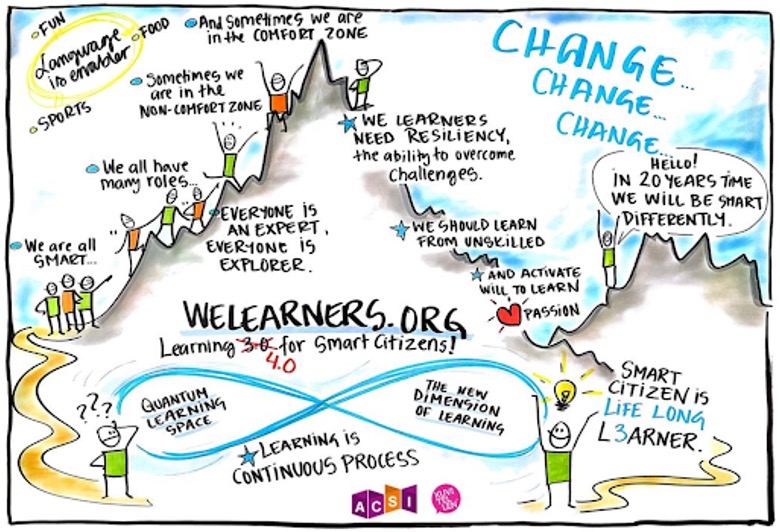 FUN
FOOD
Language
is enabler
SPORTS
And Sometimes we are
in the COMFORT ZONE
Sometimes we
are in the
NON-COMFORT ZONE
We all have
many roles...
We are all
SMART...
EVERYONE IS
AN EXPERT,
EVERYONE IS
EXPLORER.
CHANGE...
CHANGE...
CHANGE...
WE LEARNERS
NEED RESILIENCY,
the ability to overcome
Challenges.
WE SHOULD LEARN
FROM UNSKILLED
AND ACTIVATE
WILL TO LEARN
PASSION
HELLO!
IN 20 YEARS TIME
WE WILL BE SMART
DIFFERENTLY.
WELEARNERS.ORG
Learning 3.0 for Smart Citizens!
4.0
QUANTUM
LEARNING
SPACE
THE NEW
DIMENSION
OF LEARNING
???
LEARNING IS
CONTINUOUS PROCESS
SMART
CITIZEN IS
LIFE LONG
L3ARNER.
ACSI